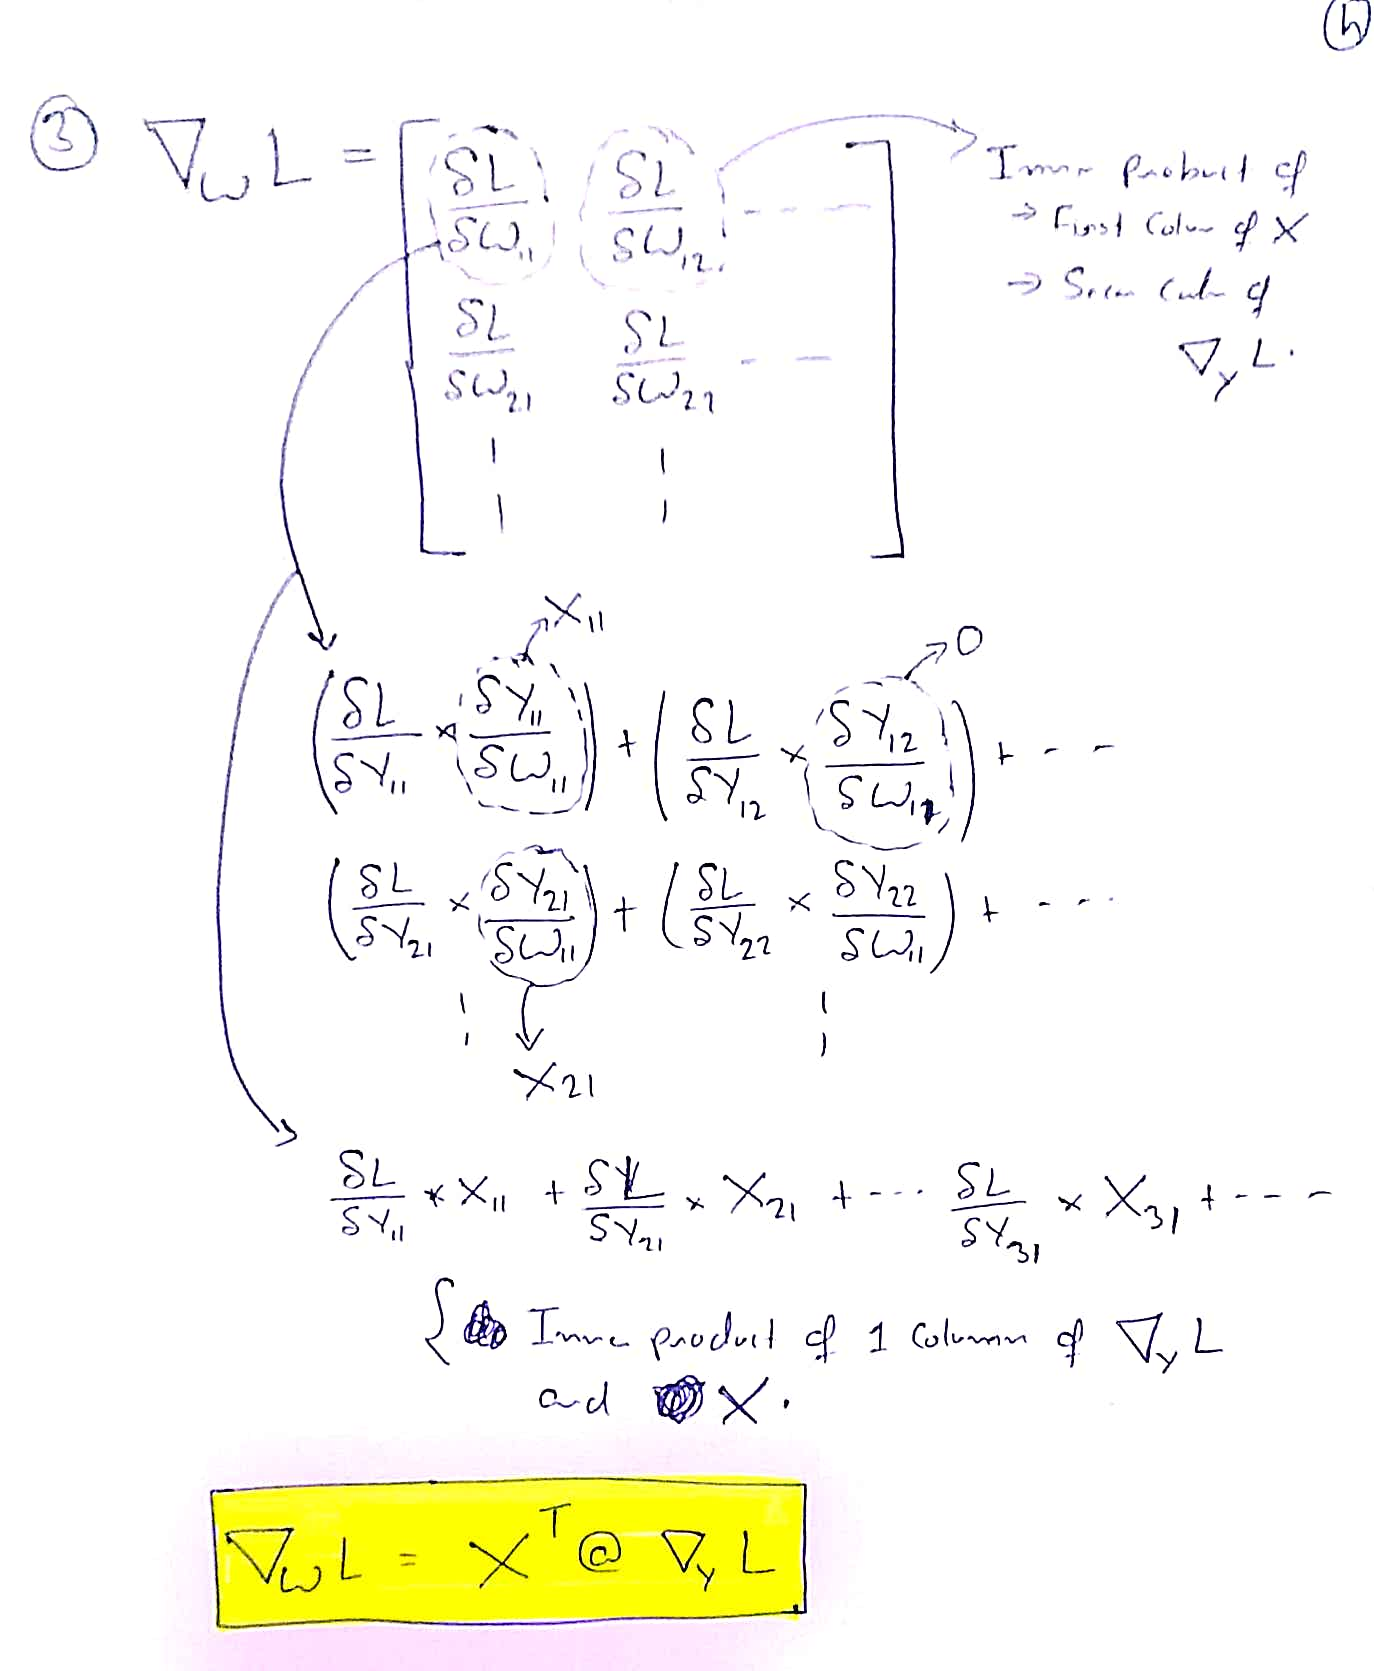 (h)
③ ∇_W L = [ δL/δW₁₁ δL/δW₁₂ - - -
δL/δW₂₁ δL/δW₂₂ - - ]
Inner Product of
→ First Colum of X
→ of
∇_Y L.
X₁₁
0
(δL/δY₁₁ × δY₁₁/δW₁₁) + (δL/δY₁₂ × δY₁₂/δW₁₁) + - - -
(δL/δY₂₁ × δY₂₁/δW₁₁) + (δL/δY₂₂ × δY₂₂/δW₁₁) + - - -
X₂₁
δL/δY₁₁ * X₁₁ + δL/δY₂₁ × X₂₁ + - - - δL/δY₃₁ × X₃₁ + - - -
{ Inner product of 1 Column of ∇_Y L
and X.
∇_W L = Xᵀ @ ∇_Y L